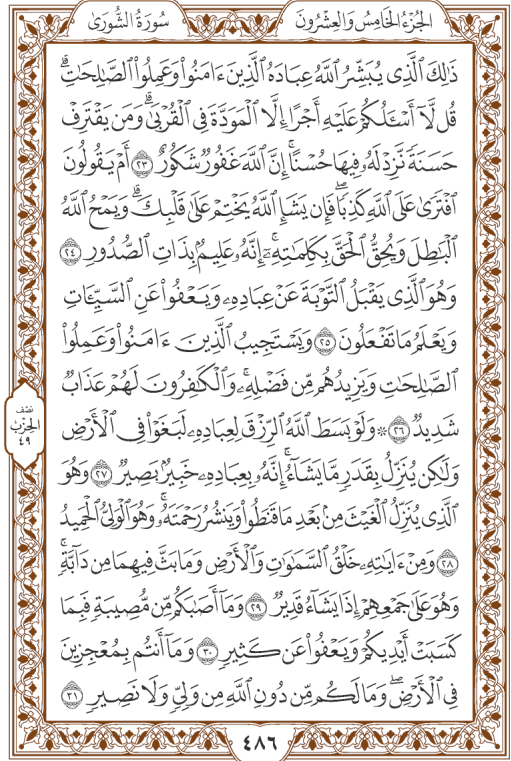 الجُزْءُ الخَامِسُ وَالعِشْرُونَ
سُورَةُ الشُّورَىٰ
ذَٰلِكَ ٱلَّذِي يُبَشِّرُ ٱللَّهُ عِبَادَهُ ٱلَّذِينَ ءَامَنُوا۟ وَعَمِلُوا۟ ٱلصَّـٰلِحَـٰتِۗ
قُل لَّآ أَسْـَٔلُكُمْ عَلَيْهِ أَجْرًا إِلَّا ٱلْمَوَدَّةَ فِي ٱلْقُرْبَىٰۗ وَمَن يَقْتَرِفْ
حَسَنَةً نَّزِدْ لَهُۥ فِيهَا حُسْنًاۚ إِنَّ ٱللَّهَ غَفُورٌ شَكُورٌ ٢٣ أَمْ يَقُولُونَ
ٱفْتَرَىٰ عَلَى ٱللَّهِ كَذِبًاۖ فَإِن يَشَإِ ٱللَّهُ يَخْتِمْ عَلَىٰ قَلْبِكَۗ وَيَمْحُ ٱللَّهُ
ٱلْبَـٰطِلَ وَيُحِقُّ ٱلْحَقَّ بِكَلِمَـٰتِهِۦٓۚ إِنَّهُۥ عَلِيمٌۢ بِذَاتِ ٱلصُّدُورِ ٢٤
وَهُوَ ٱلَّذِي يَقْبَلُ ٱلتَّوْبَةَ عَنْ عِبَادِهِۦ وَيَعْفُوا۟ عَنِ ٱلسَّيِّـَٔاتِ
وَيَعْلَمُ مَا تَفْعَلُونَ ٢٥ وَيَسْتَجِيبُ ٱلَّذِينَ ءَامَنُوا۟ وَعَمِلُوا۟
ٱلصَّـٰلِحَـٰتِ وَيَزِيدُهُم مِّن فَضْلِهِۦۚ وَٱلْكَـٰفِرُونَ لَهُمْ عَذَابٌ
شَدِيدٌ ٢٦ ۞ وَلَوْ بَسَطَ ٱللَّهُ ٱلرِّزْقَ لِعِبَادِهِۦ لَبَغَوْا۟ فِي ٱلْأَرْضِ
وَلَـٰكِن يُنَزِّلُ بِقَدَرٍ مَّا يَشَآءُۚ إِنَّهُۥ بِعِبَادِهِۦ خَبِيرٌۢ بَصِيرٌ ٢٧ وَهُوَ
ٱلَّذِي يُنَزِّلُ ٱلْغَيْثَ مِنۢ بَعْدِ مَا قَنَطُوا۟ وَيَنشُرُ رَحْمَتَهُۥۚ وَهُوَ ٱلْوَلِيُّ ٱلْحَمِيدُ
٢٨ وَمِنْ ءَايَـٰتِهِۦ خَلْقُ ٱلسَّمَـٰوَٰتِ وَٱلْأَرْضِ وَمَا بَثَّ فِيهِمَا مِن دَآبَّةٍۚ
وَهُوَ عَلَىٰ جَمْعِهِمْ إِذَا يَشَآءُ قَدِيرٌ ٢٩ وَمَآ أَصَـٰبَكُم مِّن مُّصِيبَةٍ فَبِمَا
كَسَبَتْ أَيْدِيكُمْ وَيَعْفُوا۟ عَن كَثِيرٍ ٣٠ وَمَآ أَنتُم بِمُعْجِزِينَ
فِي ٱلْأَرْضِۖ وَمَا لَكُم مِّن دُونِ ٱللَّهِ مِن وَلِيٍّ وَلَا نَصِيرٍ ٣١
نصف
الحِزْب
٤٩
٤٨٦